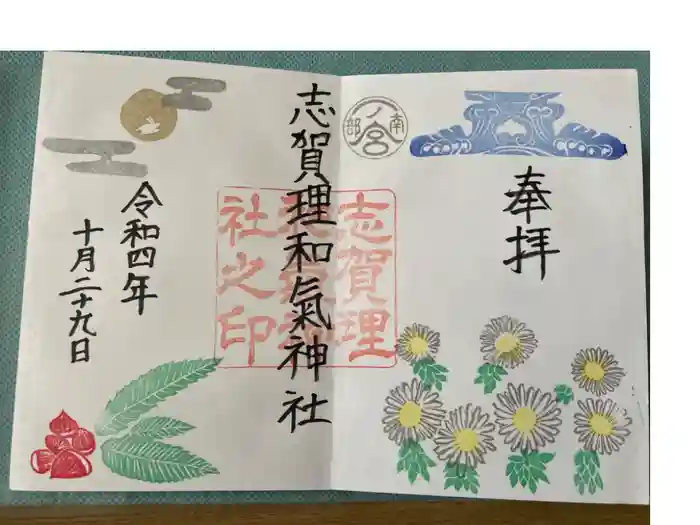 奉拝
南ノ宮部
志賀理和氣神社
志賀理
社之印
令和四年
十月二十九日